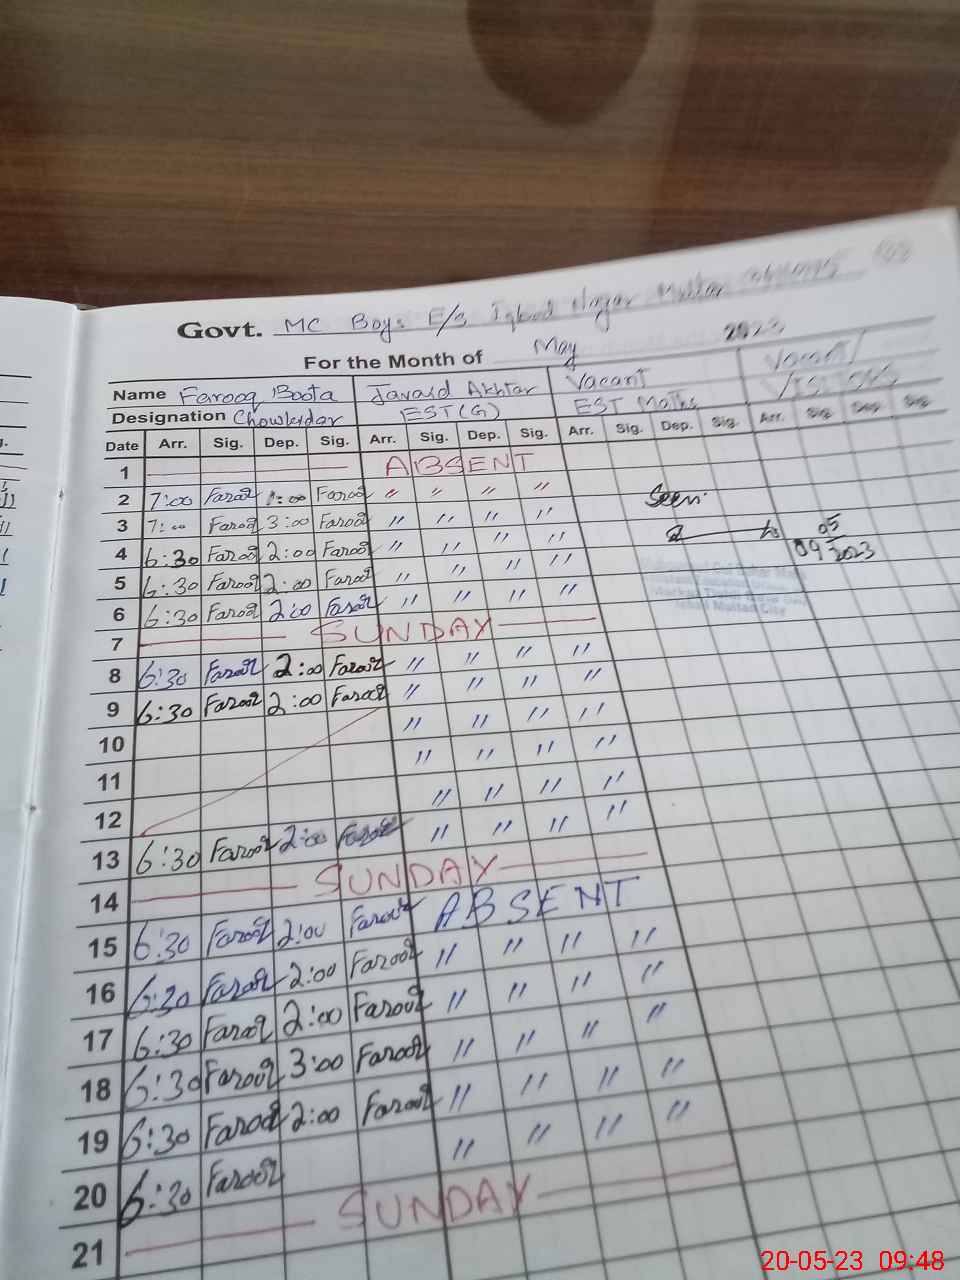 Govt. MC Boys E/S Iqbal Nagar Multan
For the Month of May 2023
Name Farooq Boota Javaid Akhtar Vacant Vacant
Designation Chowkidar EST(G) EST Maths
Date Arr. Sig. Dep. Sig. Arr. Sig. Dep. Sig. Arr. Sig. Dep. Sig. Arr. Sig. Dep. Sig.
1 ABSENT
2 7:00 Farooq 1:00 Farooq " " " " Seen.
3 7:00 Farooq 3:00 Farooq " " " "
4 6:30 Farooq 2:00 Farooq " " " " 09 05 2023
5 6:30 Farooq 2:00 Farooq " " " "
6 6:30 Farooq 2:00 Farooq " " " "
7 SUNDAY
8 6:30 Farooq 2:00 Farooq " " " "
9 6:30 Farooq 2:00 Farooq " " " "
10 " " " "
11 " " " "
12 " " " "
13 6:30 Farooq 2:00 Farooq " " " "
14 SUNDAY
15 6:30 Farooq 2:00 Farooq ABSENT
16 6:30 Farooq 2:00 Farooq " " " "
17 6:30 Farooq 2:00 Farooq " " " "
18 6:30 Farooq 3:00 Farooq " " " "
19 6:30 Farooq 2:00 Farooq " " " "
20 6:30 Farooq " " " "
21 SUNDAY
20-05-23 09:48